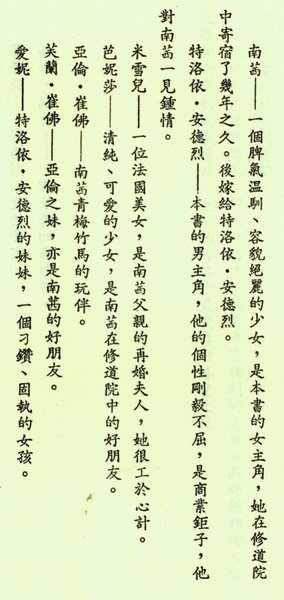 南茜——一個脾氣溫馴、容貌絕麗的少女，是本書的女主角，她在修道院
中寄宿了幾年之久。後嫁給特洛依·安德烈。
特洛依·安德烈——本書的男主角，他的個性剛毅不屈，是商業鉅子，他
對南茜一見鍾情。
米雪兒——一位法國美女，是南茜父親的再婚夫人，她很工於心計。
芭妮莎——清純、可愛的少女，是南茜在修道院中的好朋友。
亞倫·崔佛——南茜青梅竹馬的玩伴。
芙蘭·崔佛——亞倫之妹，亦是南茜的好朋友。
愛妮——特洛依·安德烈的妹妹，一個刁鑽、固執的女孩。